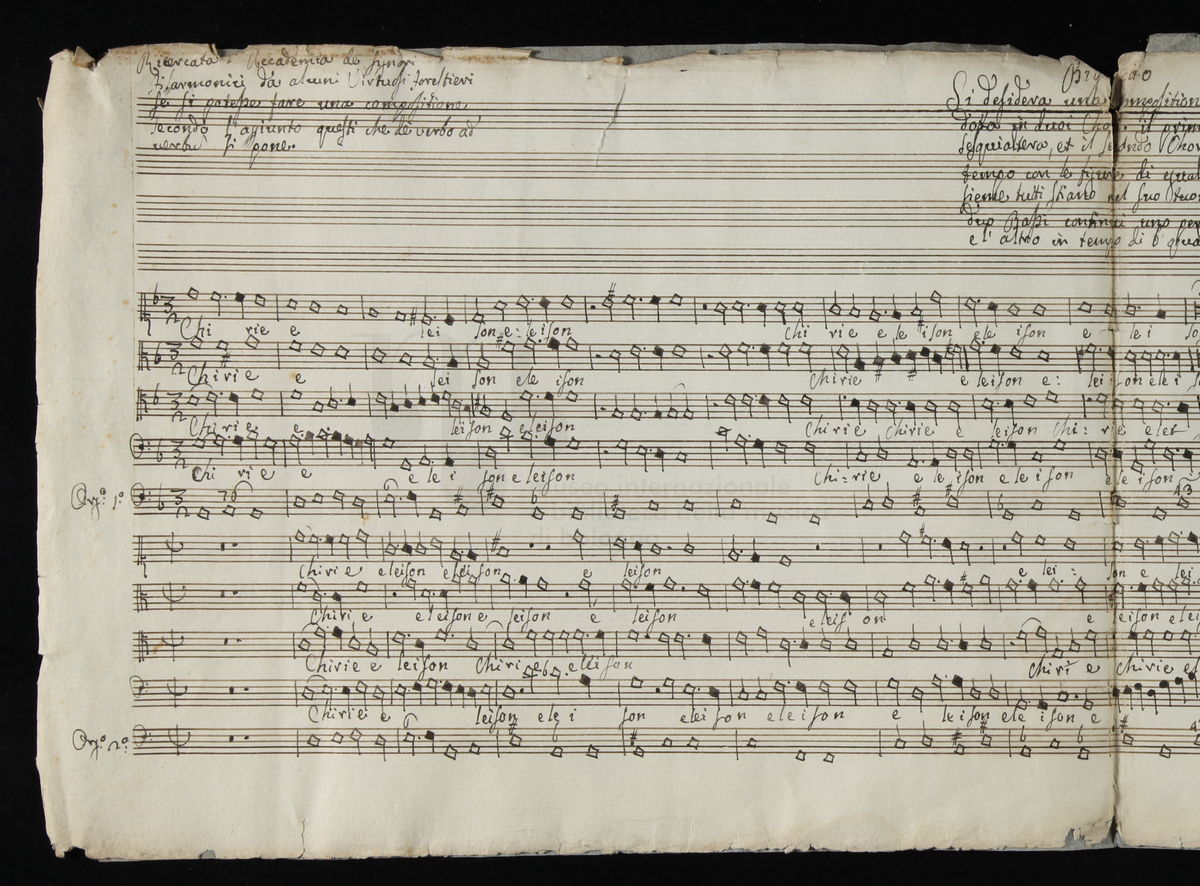 Ricercata l' Accademia de Signori
Filarmonici da alcuni Virtuosi forestieri
se si potesse fare una compositione
secondo l' agiunto questi che de verbo ad
verbu si pone.
Si desidera una compositione
in duoi il prim
sesquialtera, et il secondo Chor
tempo con le figure di egual
sieme tutti stiano nel suo
duo Bassi continui uno per
e l' altro in tempo di 6 qua
Chi rie e lei son e: leison Chi rie e le ison ele ison e le i so
Chirie e lei son ele ison Chirie e leison e: lei son ele i s
Chi rie e leison eleison Chirie Chirie e leison Chi: rie elet
Chi rie e e le i son eleison Chi: rie e le ison eleison ele ison
Org:o 1:o
Chirie eleison eleison e leison e lei: son e lei
Chirie eleison e leison e leison eleis on e leison elei
Chirie e leison Chirie eleison Chiri e Chirie el
Chirie e leison ele i son elei son eleison e leison ele ison e
Org:o 2:o